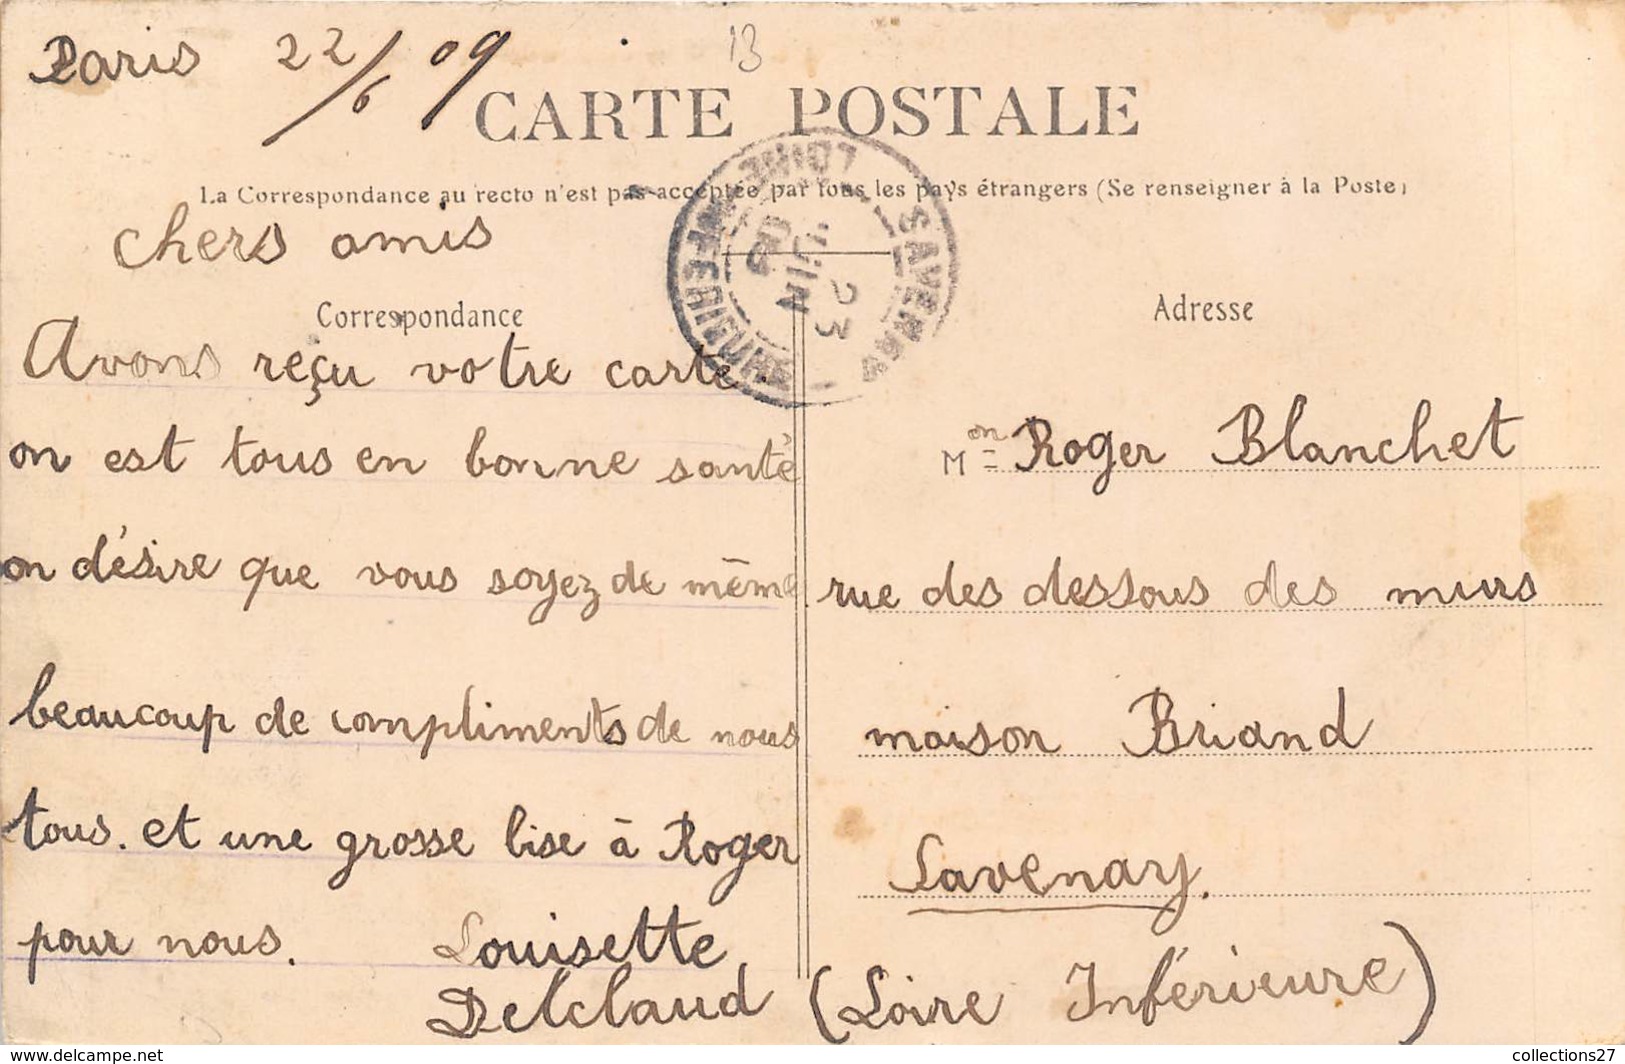 Paris 22/6 09
13
CARTE POSTALE
La Correspondance au recto n'est pas acceptée par tous les pays étrangers (Se renseigner à la Poste)
chers amis
Correspondance
Avons reçu votre carte.
on est tous en bonne santé
on désire que vous soyez de même
beaucoup de compliments de nous
tous. et une grosse bise à Roger
pour nous.
Louisette
Delclaud
SAVENAY
LOIRE INFERIEURE
23
JUIN
09
Adresse
Mon Roger Blanchet
rue des dessous des murs
maison Briand
Savenay.
(Loire Inférieure)
collections27